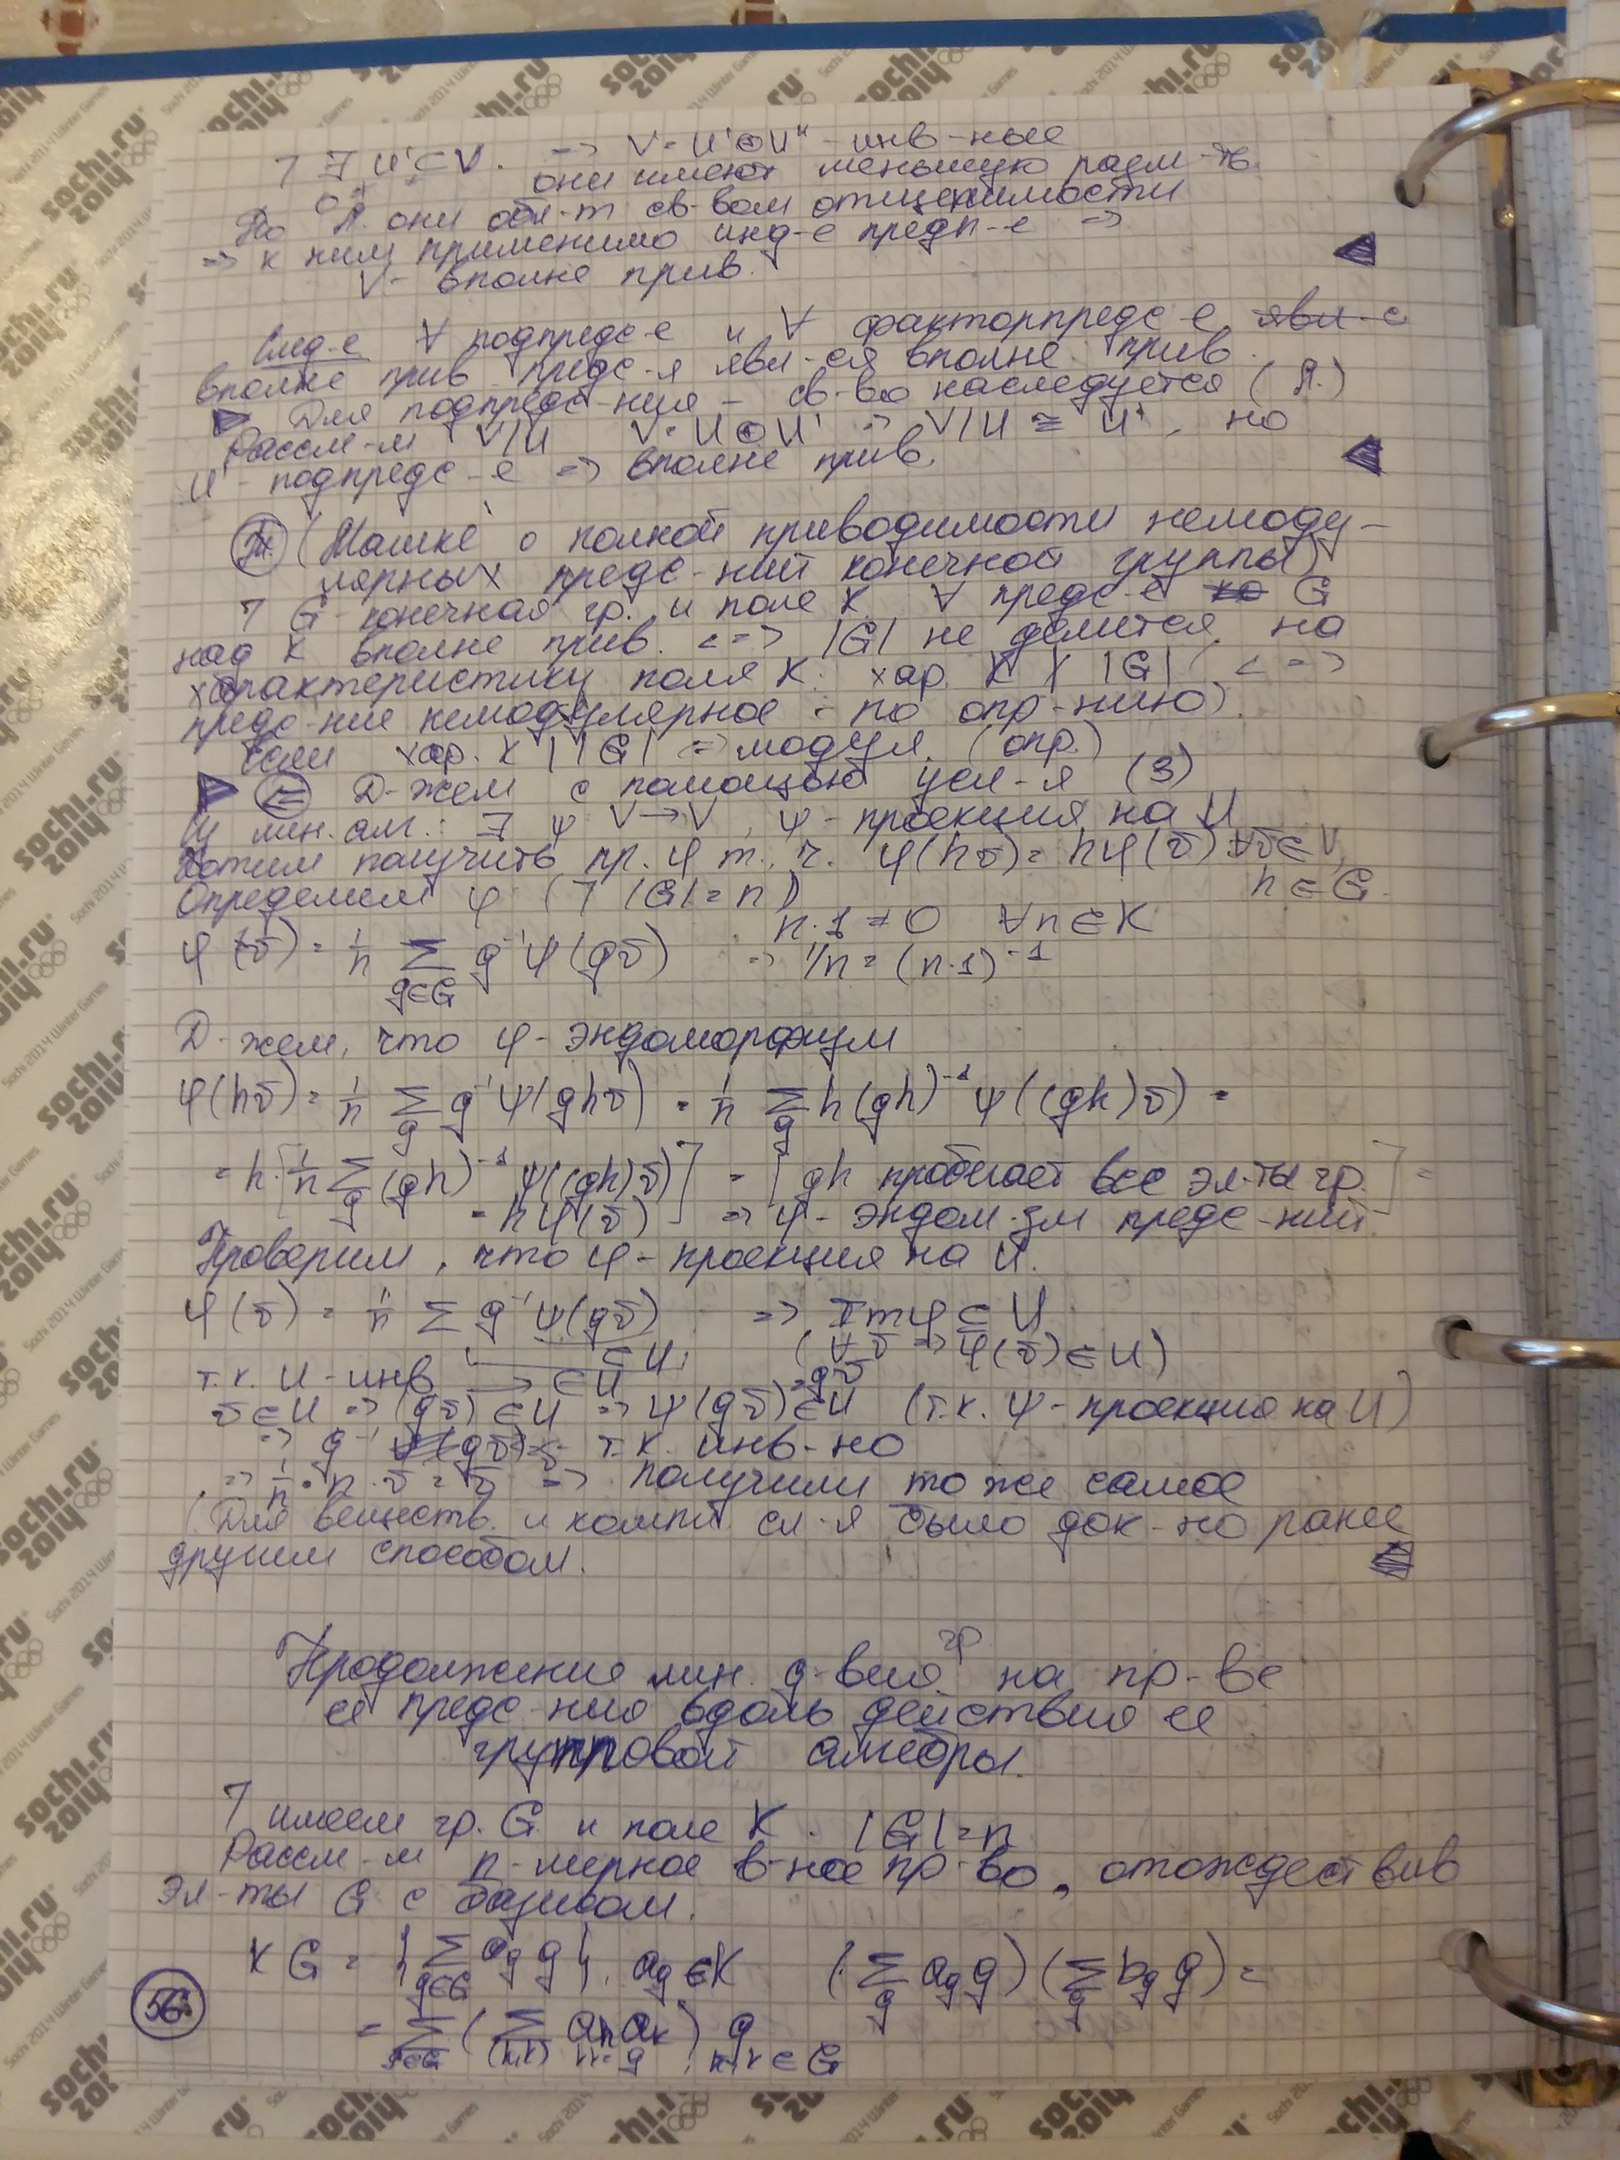 ⅂ ∃ U' ⊂ V. => V = U' ⊕ U'' - инв-ные
они имеют меньшую разм-ть.
По Л. они обл-т св-вом отщепимости
=> к ним применимо инд-е предп-е =>
V - вполне прив.
След-е ∀ подпредс-е и ∀ факторпредс-е явл-с
вполне прив. предс-я явл-ся вполне прив.
Для подпредс-ния - св-во наследуется (Л.)
Рассм-м V/U V = U ⊕ U' => V/U ≅ U', но
U' - подпредс-е => вполне прив.
Т. (Машке о полной приводимости немоду-
лярных предс-ний конечной группы)
⅂ G - конечная гр. и поле K. ∀ предс-е G
над K вполне прив. <=> |G| не делится на
характеристику поля K. хар. K ∤ |G| <=>
предс-ние немодулярное - по опр-нию).
Если хар. K | |G| => модул. (опр.)
<= Д-жем с помощью усл-я (3)
Из лин. алг.: ∃ ψ: V → V, ψ - проекция на U
Хотим получить пр. φ т.ч. φ(hv̄) = hφ(v̄) ∀v̄ ∈ V,
h ∈ G.
Определим φ (⅂ |G| = n)
n·1 ≠ 0 ∀n ∈ K
φ(v̄) = 1/n Σ g⁻¹ψ(gv̄) => 1/n = (n·1)⁻¹
g∈G
Д-жем, что φ - эндоморфизм
φ(hv̄) = 1/n Σ g⁻¹ψ(ghv̄) = 1/n Σ h(gh)⁻¹ψ((gh)v̄) =
g g
= h·[1/n Σ (gh)⁻¹ψ((gh)v̄)] = [gh пробегает все эл-ты гр.] =
g
= hφ(v̄) => φ - эндом-зм предс-ний
Проверим, что φ - проекция на U.
φ(v̄) = 1/n Σ g⁻¹ψ(gv̄) => Im φ ⊆ U
∈ U, (∀ v̄ => φ(v̄) ∈ U)
т.к. U - инв → ∈ U
v̄ ∈ U => (gv̄) ∈ U => ψ(gv̄) ∈ U (т.к. ψ - проекция на U)
= gv̄
=> g⁻¹ т.к. инв-но
=> 1/n · n · v̄ = v̄ => получили то же самое
(Для веществ. и компл. сл-я было док-но ранее
другим способом.
Продолжение лин. д-вия гр. на пр-ве
её предс-ния вдоль действия её
групповой алгебры.
⅂ имеем гр. G и поле K. |G| = n
Рассм-м n-мерное в-ное пр-во, отождествив
эл-ты G с базисом.
KG = {Σ a_g g}, a_g ∈ K (Σ a_g g)(Σ b_g g) =
g∈G g g
= Σ (Σ a_h a_k) g
g∈G (h,k) hk=g, h,k ∈ G
56.
sochi.ru
2014
Sochi 2014 Winter Games